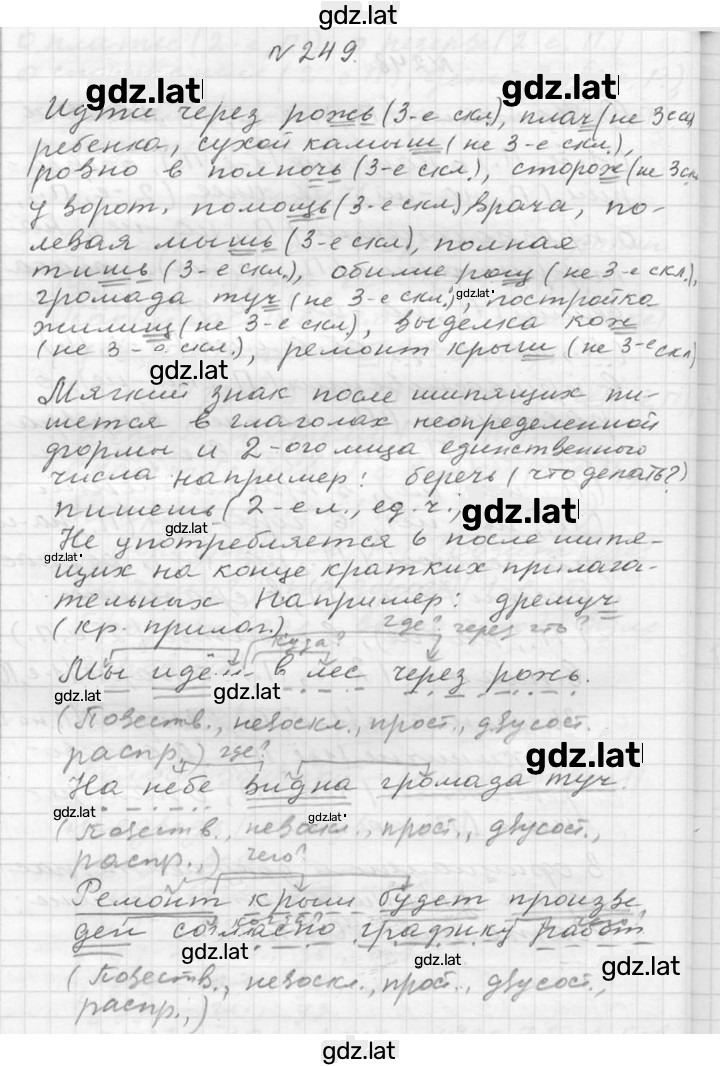 gdz.lat
№249.
gdz.lat gdz.lat
Идти через рожь (3-е скл.), плач (не 3 скл
ребенка, сухой камыш (не 3-е скл.),
ровно в полночь (3-е скл.), сторож (не 3 скл
у ворот, помощь (3-е скл) врача, по-
левая мышь (3-е скл), полная
тишь (3-е скл.), обилие рощ (не 3-е скл.),
громада туч (не 3-е скл.), постройка
gdz.lat
жилищ (не 3-е скл), выделка кож
(не 3-е скл.), ремонт крыш (не 3-е скл)
gdz.lat
Мягкий знак после шипящих пи-
шется в глаголах неопределенной
формы и 2-ого лица единственного
числа например: беречь (что делать?)
пишешь (2-е л., ед.ч.,
gdz.lat
gdz.lat
Не употребляется ь после шипя-
gdz.lat
щих на конце кратких прилага-
тельных Например: дремуч
(кр. прилаг.) где? через что?
куда?
Мы идём в лес через рожь.
gdz.lat gdz.lat
(Повеств., невоскл., прост., двусост.
распр.,) где?
gdz.lat
На небе видна громада туч.
gdz.lat gdz.lat
(Повеств., невоскл., прост., двусост.,
распр.,) чего?
Ремонт крыш будет произве
ден согласно графику работ
gdz.lat gdz.lat gdz.lat
(Повеств., невоскл., прост., двусост.,
распр.,)
gdz.lat